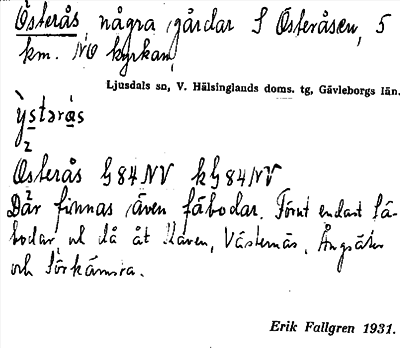 Österås, några gårdar S Österåsen, 5
km. NO kyrkan,
Ljusdals sn, V. Hälsinglands doms. tg, Gävleborgs län.
ỳstərås
2
Österås G84NV kG84NV
Där finnas även fäbodar. Förut endast fä-
bodar, då åt Västernäs,
och
Erik Fallgren 1931.